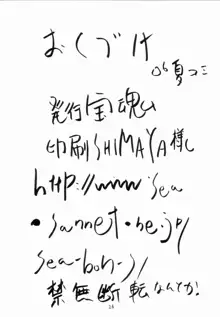 おくづけ
06夏コミ
発行宝魂
印刷SHIMAYA様
http://www.sea
・sannet・ne.jp/
sea-bon-s/
禁無断転なんとか!